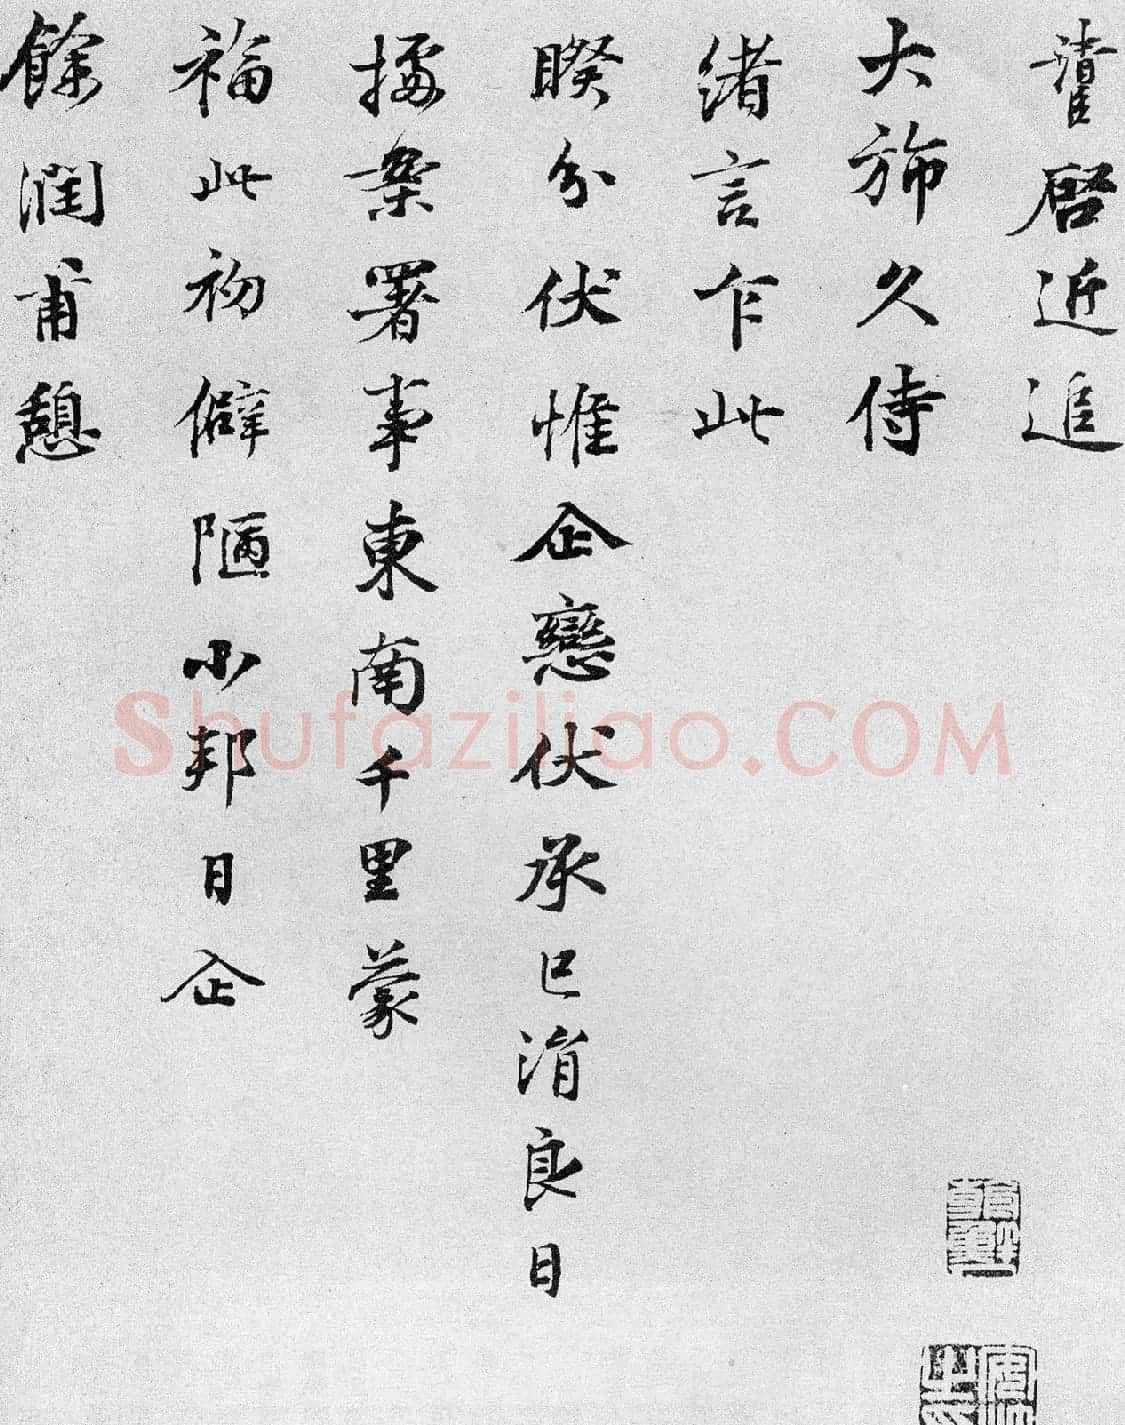 𤀹啓近追
大斾久侍
绪言乍此
睽分伏惟企戀伏承已涓良日
據案署事東南千里蒙
福此初僻陋小邦日企
餘潤甫憩
Shufaziliao.COM